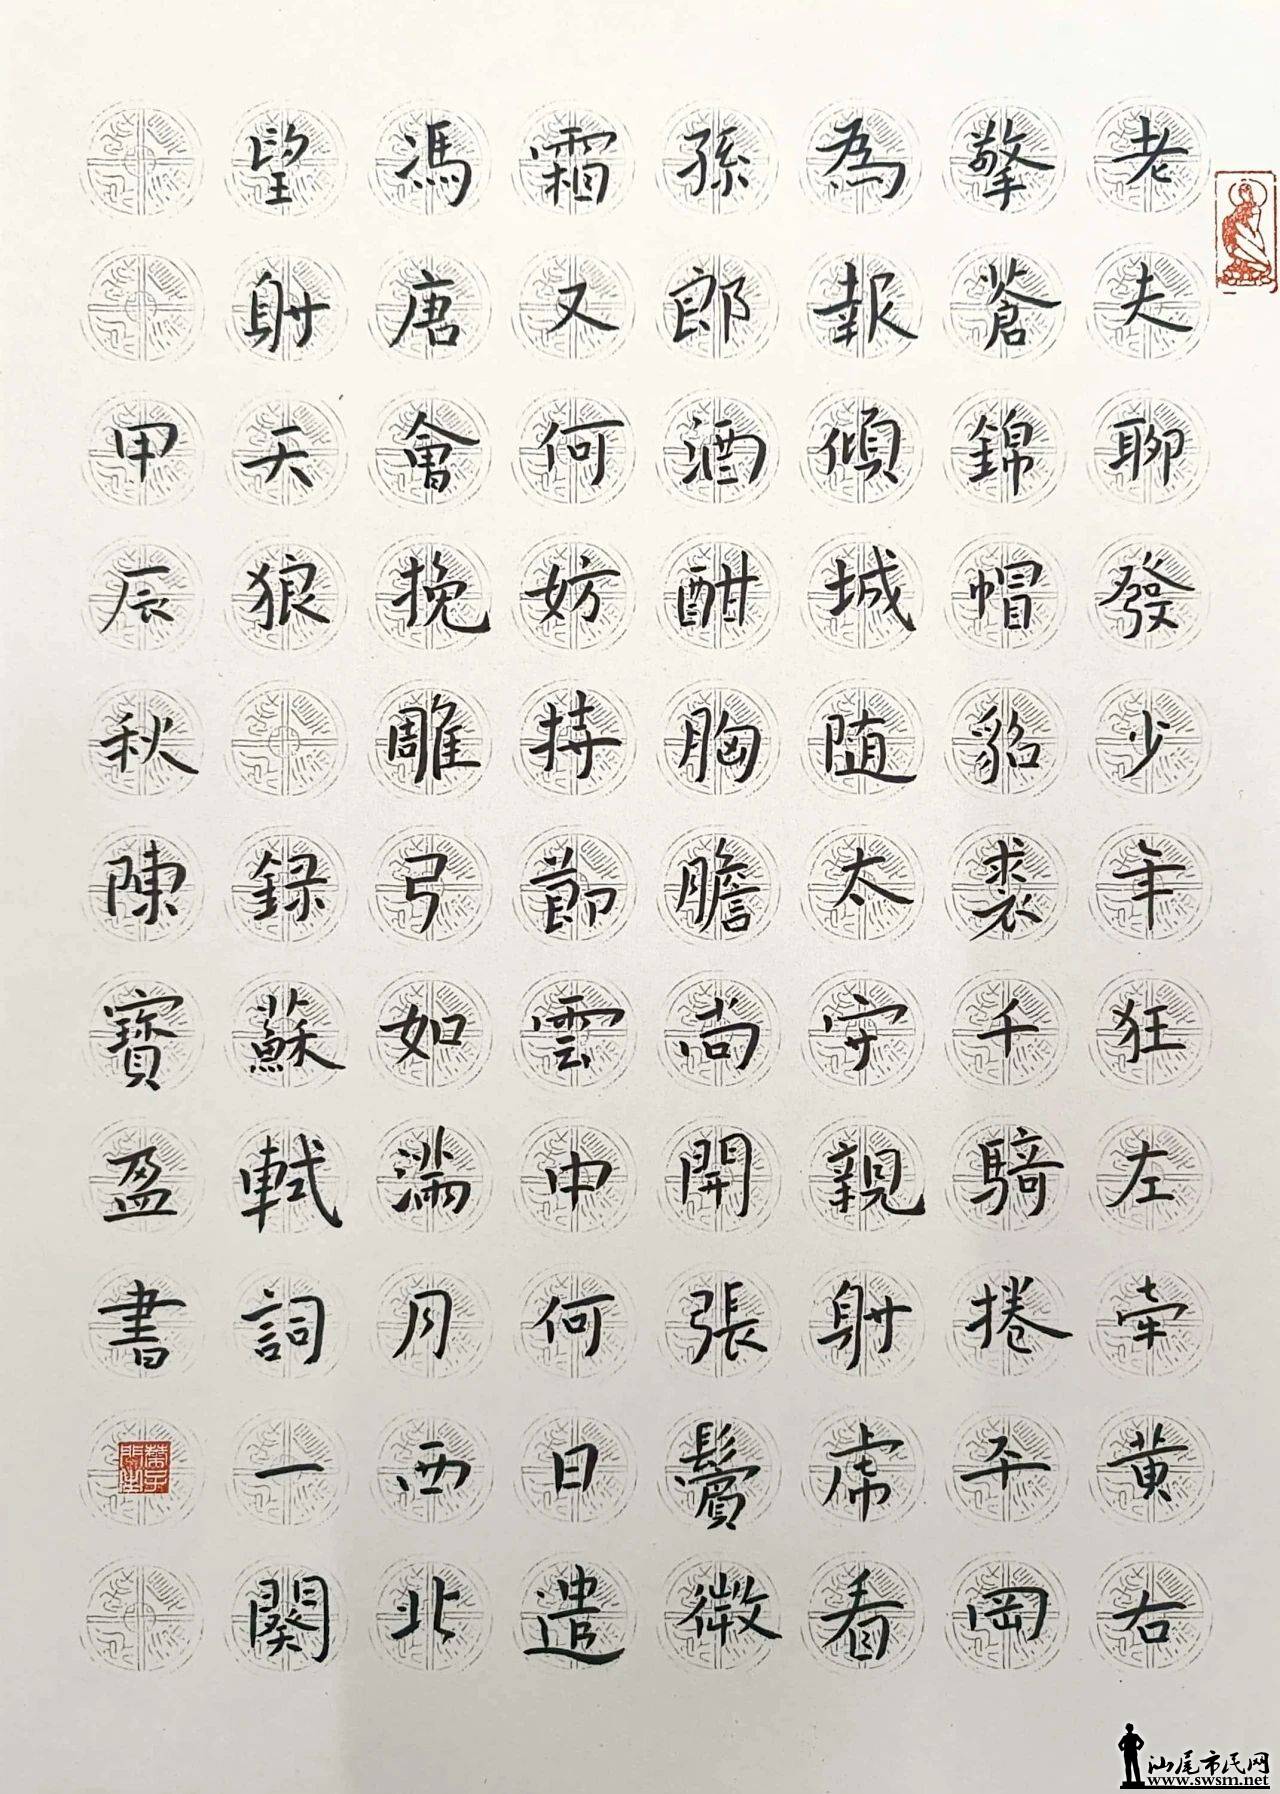 老夫聊發少年狂左牵黄右
擎蒼錦帽貂裘千騎捲平岡
為報傾城随太守親射虎看
孫郎酒酣胸膽尚開張鬢微
霜又何妨持節雲中何日遣
馮唐會挽雕弓如滿月西北
望射天狼 録蘇軾詞一闋
甲辰秋陳寶盈書
汕尾市民网
www.swsm.net